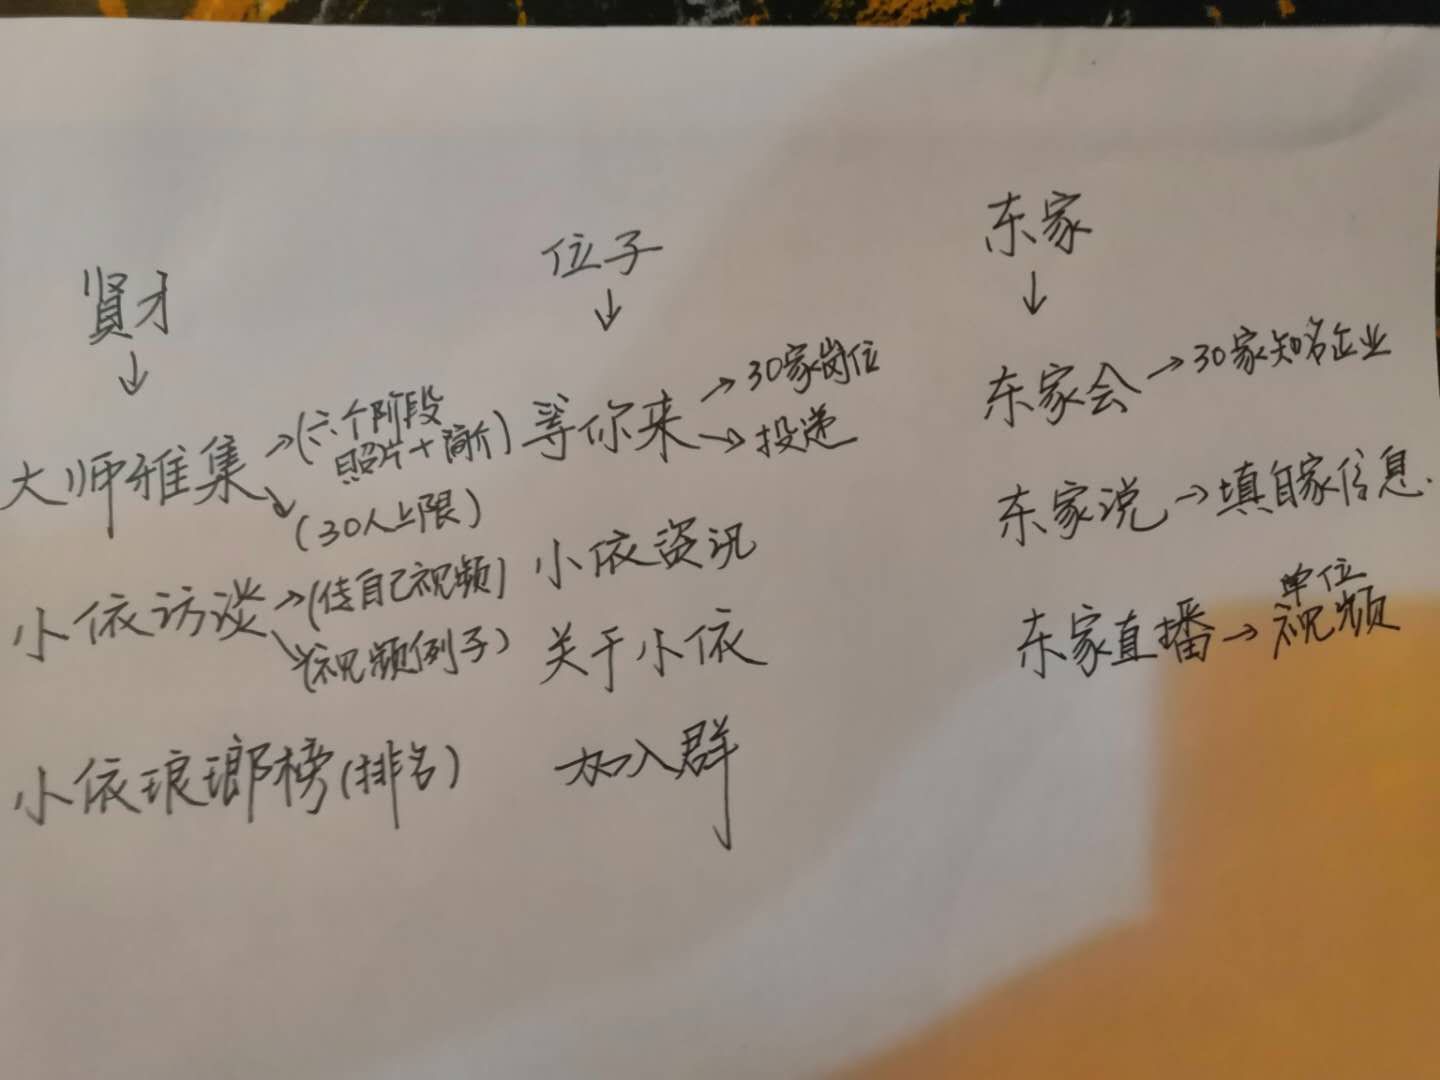 贤才
↓
大师雅集 → (六个阶段
照片+简介)
↘ (30人上限)
小依访谈 → (传自己视频)
↘ (视频例子)
小依琅琊榜(排名)
位子
↓
等你来 → 30家岗位
→ 投递
小依资讯
关于小依
加入群
东家
↓
东家会 → 30家知名企业
东家说 → 填自家信息.
东家直播 → 单位
视频